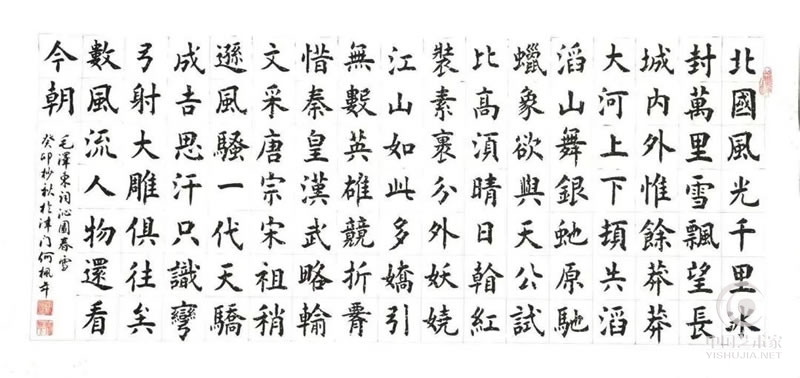 北國風光千里冰
封萬里雪飄望長
城内外惟餘莽莽
大河上下頓失滔
滔山舞銀虵原馳
蠟象欲與天公試
比高須晴日看紅
裝素裹分外妖娆
江山如此多嬌引
無數英雄競折腰
惜秦皇漢武略輸
文采唐宗宋祖稍
遜風騷一代天驕
成吉思汗只識彎
弓射大雕俱往矣
數風流人物還看
今朝
毛澤東詞沁園春雪
癸卯杪秋於津门何楓书
中国艺术家
YISHUJIA.NET